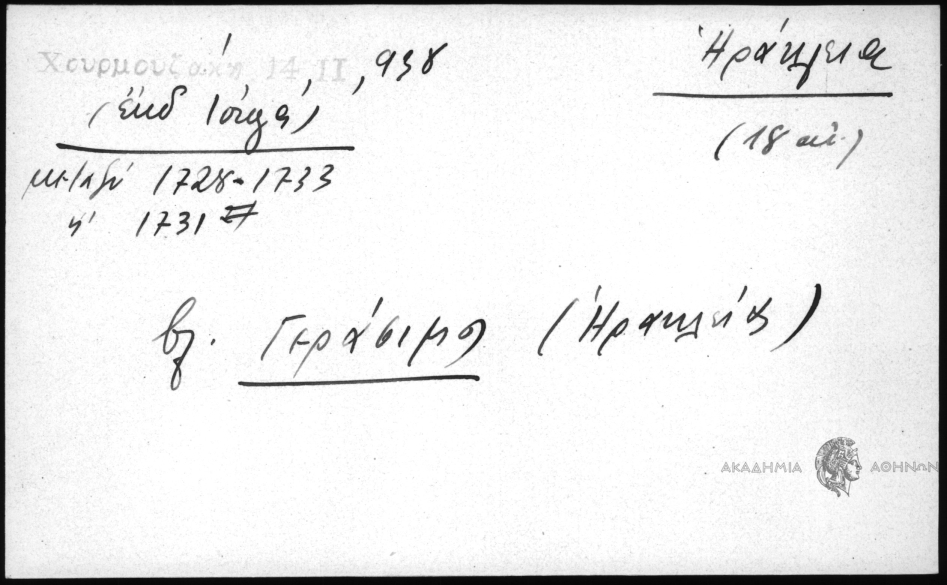 Χουρμουζάκη 14 II, 938
Ἡράκλεια
(ἔκδ
(18 αἰ.)
μεταξύ 1728-1733
ἤ 1731
βλ. Γεράσιμος (Ἡρακλείας)
ΑΚΑΔΗΜΙΑ ΑΘΗΝΩΝ